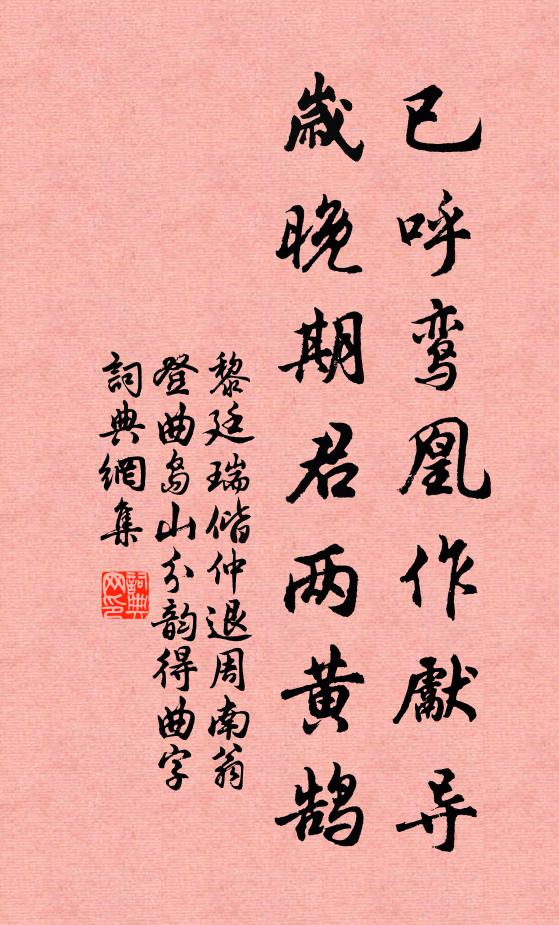 已呼鸾凰作献导
歳晚期君两黄鹄
黎廷瑞偕仲退周南翁
登曲岛山分韵得曲字
詞典網集
詞典网印